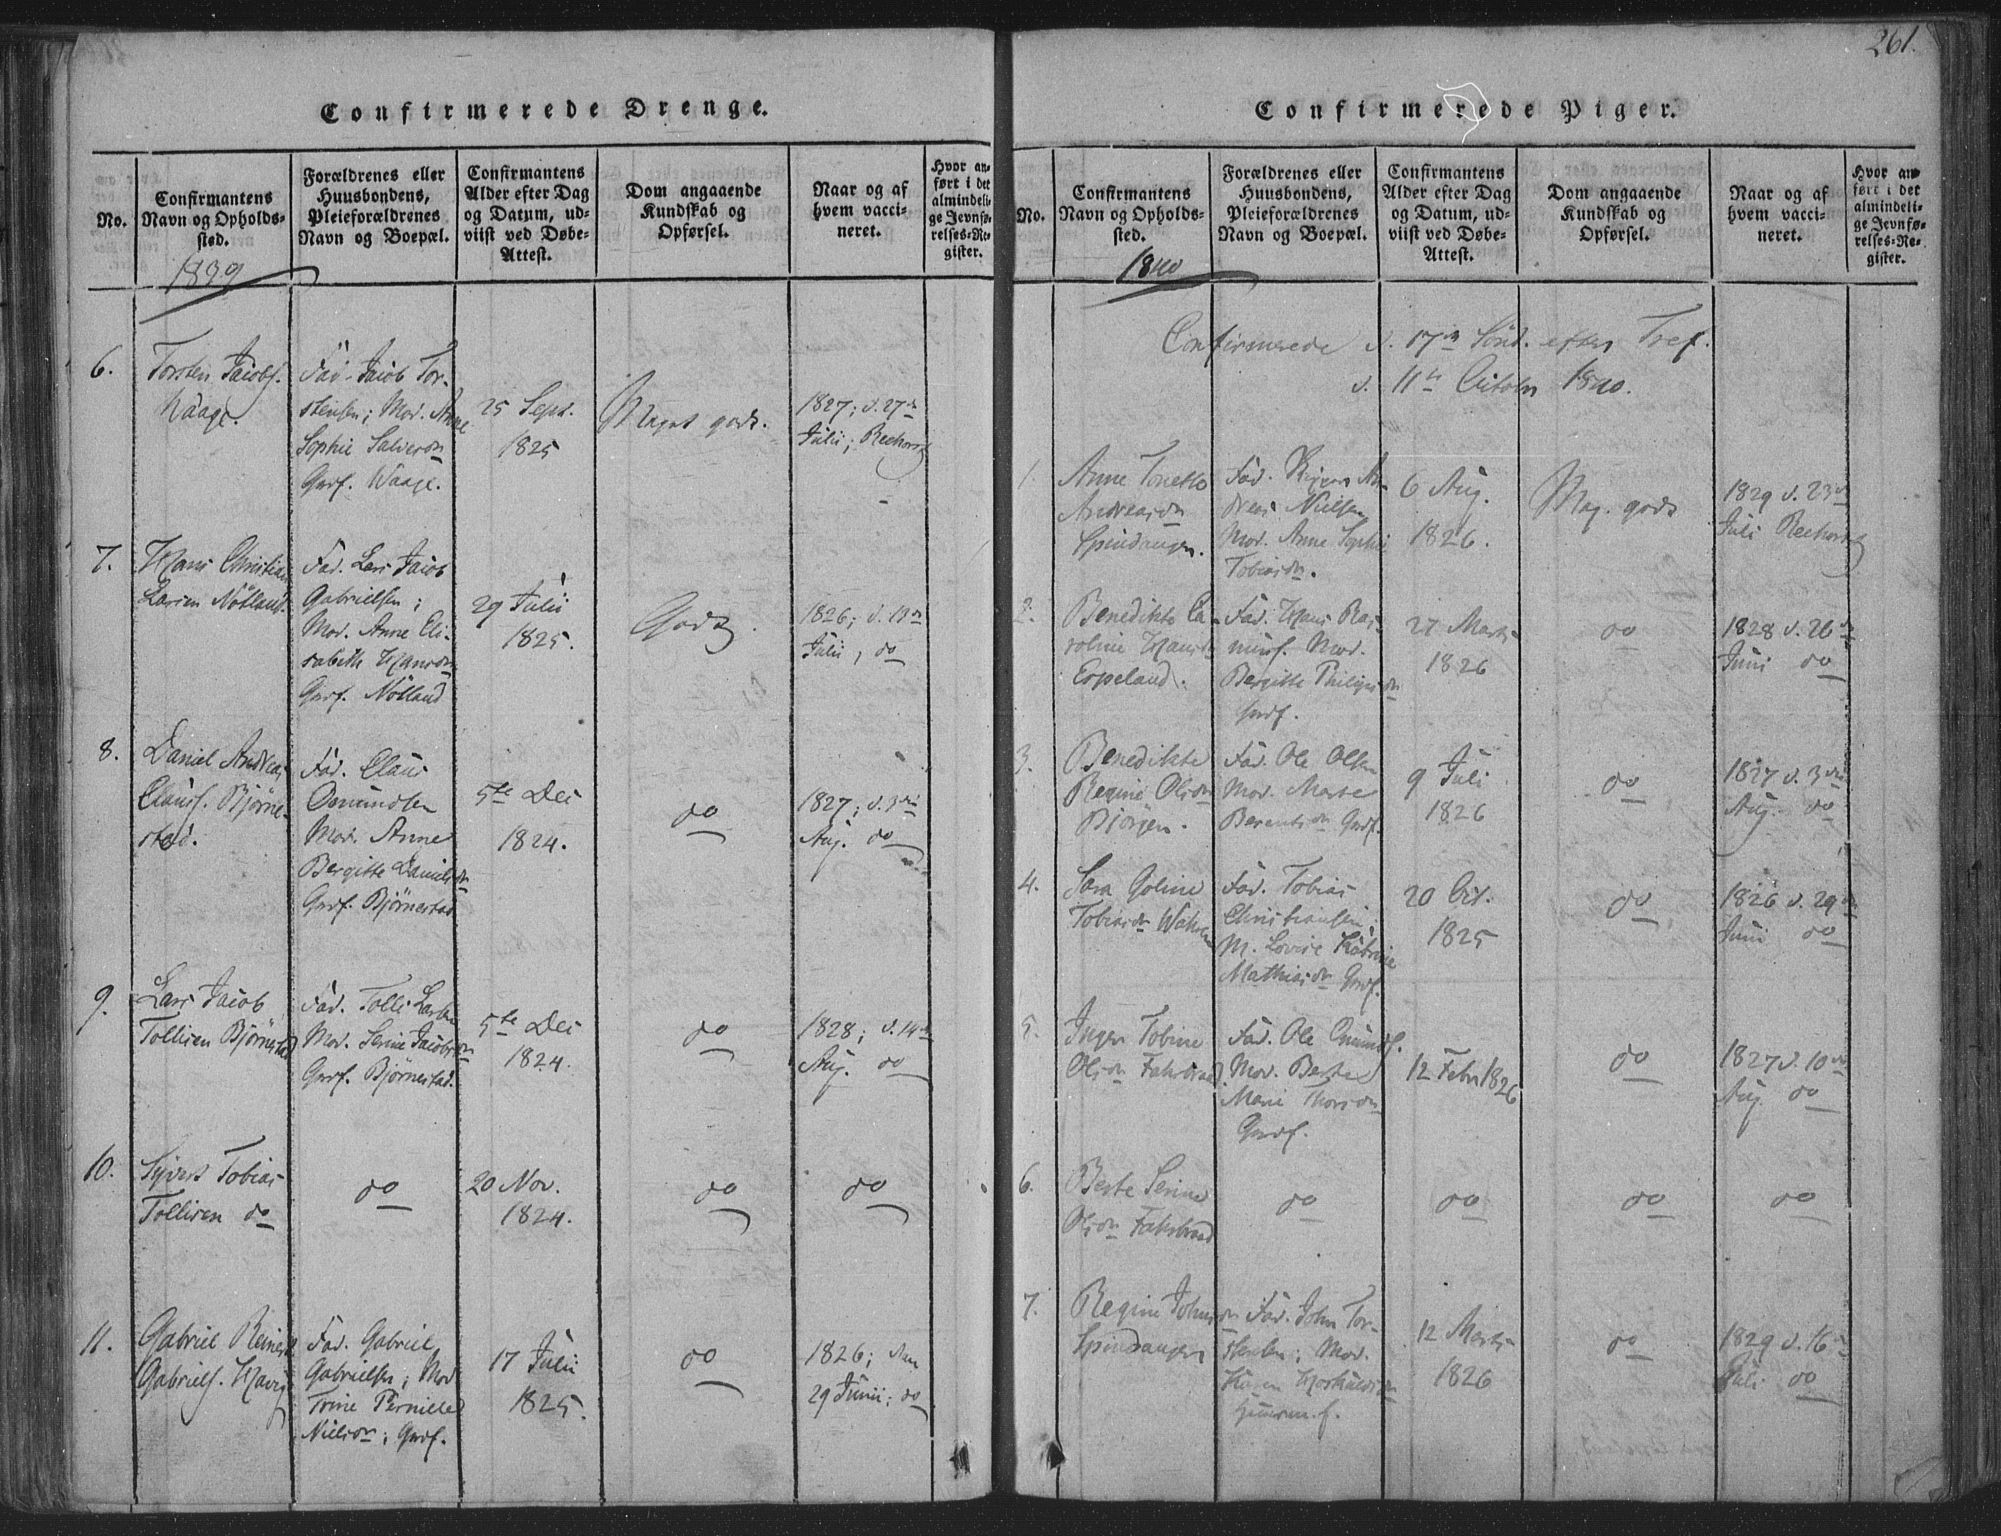 261.
Confirmerede Drenge.
No.
Confirmantens
Navn og Opholds-
sted.
Forældrenes eller
Huusbondens,
Pleieforældrenes
Navn og Boepæl.
Confirmantens
Alder efter Dag
og Datum, ud-
viist ved Døbe-
Attest.
Dom angaaende
Kundskab og
Opførsel.
Naar og af
hvem vacci-
neret.
Hvor an-
ført i det
almindeli-
ge Jevnfø-
relses-Re-
gister.
1839
6.
Torsten Jacobs.
Waage.
Fad. Jacob Tor-
stensen; Mod. Anne
Sophie Salvesdn
Grdf. Waage.
25 Sept.
1825
Meget godt.
1827; d. 27de
Julii;
7.
Hans Christian
Larsen Nötland
Fad. Lars Jacob
Gabrielsen;
Mod. Anne Eli-
sabeth Hansdn
Grdf. Nötland
29 Julii
1825.
Godt
1826; d. 13de
Julii, do
8.
Daniel Andreas
Clausf. Bjørne-
stad.
Fad. Claus
Omundsen
Mod. Anne
Bergitte Danielsdn
Grdf. Bjørnestad
5te Dec
1824.
do
1827; d. 3die
Aug. do
9.
Lars Jacob
Tollisen Bjørnestad
Fad. Tollis Larsen
Mod. Serine Jacobsdn
Grdf. Bjørnestad.
5te Dec
1824.
do
1828; d. 14de
Aug. do
10.
Syvert Tobias
Tollisen do
do
20 Nov.
1824.
do
do
11.
Gabriel Reinert
Gabrielf. Havig
Fad. Gabriel
Gabrielsen; Mod
Trine Pernille
Nielsdn; Grdf.
17 Julii
1825.
do
1826; den
29 Junii; do
Confirmerede Piger.
No.
Confirmantens
Navn og Opholds-
sted.
Forældrenes eller
Huusbondens,
Pleieforældrenes
Navn og Boepæl.
Confirmantens
Alder efter Dag
og Datum, ud-
viist ved Døbe-
Attest.
Dom angaaende
Kundskab og
Opførsel.
Naar og af
hvem vacci-
neret.
Hvor an-
ført i det
almindeli-
ge Jevnfø-
relses-Re-
gister.
1840
Confirmerede d. 17de Sönd. efter Tref.
d. 11te Octobr 1840.
1.
Anne Tonette
Andreasdn
Spindangen.
Fad. An-
dreas Nielsen
Mod. Anne Sophie
Tobiasdn.
6 Aug.
1826.
Meg. godt
1829 d. 23de
Juli
2.
Benedikte Ca-
roline Hansdn
Eopeland.
Fad. Hans Ras-
musf. Mod.
Bergitte Philipsdn
Grdf.
27 Marts
1826
do
1828 d. 26de
Juni do
3.
Benedikte
Regine Olsdn
Björgen.
Fad. Ole Olsen
Mod. Marte
Berentsdn Grdf.
9 Juli
1826
do
1827 d. 3die
Aug. do
4.
Sara Goline
Tobiasdn
Fad. Tobias
Christiansen;
M. Lovise Katrine
Mathiasdn Grdf.
20 Oct.
1825
do
1826 d. 29de
Juni do
5.
Inger Tobine
Olsdn
Fad. Ole Omundf.
Mod. Berte
Marie Thorsdn
Grdf.
12 Febr 1826
do
1827 d. 10de
Aug. do
6.
Berte Serine
Olsdn
do
do
do
do
7.
Regine Johnsdn
Spindangen
Fad. John Tor-
stensen; Mod.
Karen
Huusm.f.
12 Marts
1826
do
1829 d. 16de
Juli do